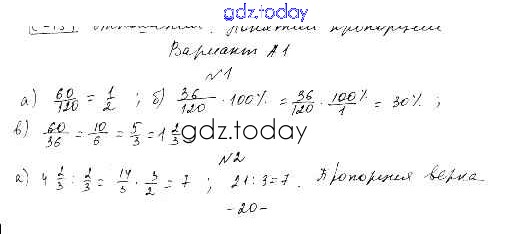 gdz.today
Понятие пропорции
Вариант А1
№1
а) 60/120 = 1/2 ; б) 36/120 · 100% = 36/120 · 100%/1 = 30% ;
в) 60/36 = 10/6 = 5/3 = 1 2/3 gdz.today
№2
а) 4 2/3 : 2/3 = 14/3 · 3/2 = 7 ; 21 : 3 = 7. Пропорция верна
-20-